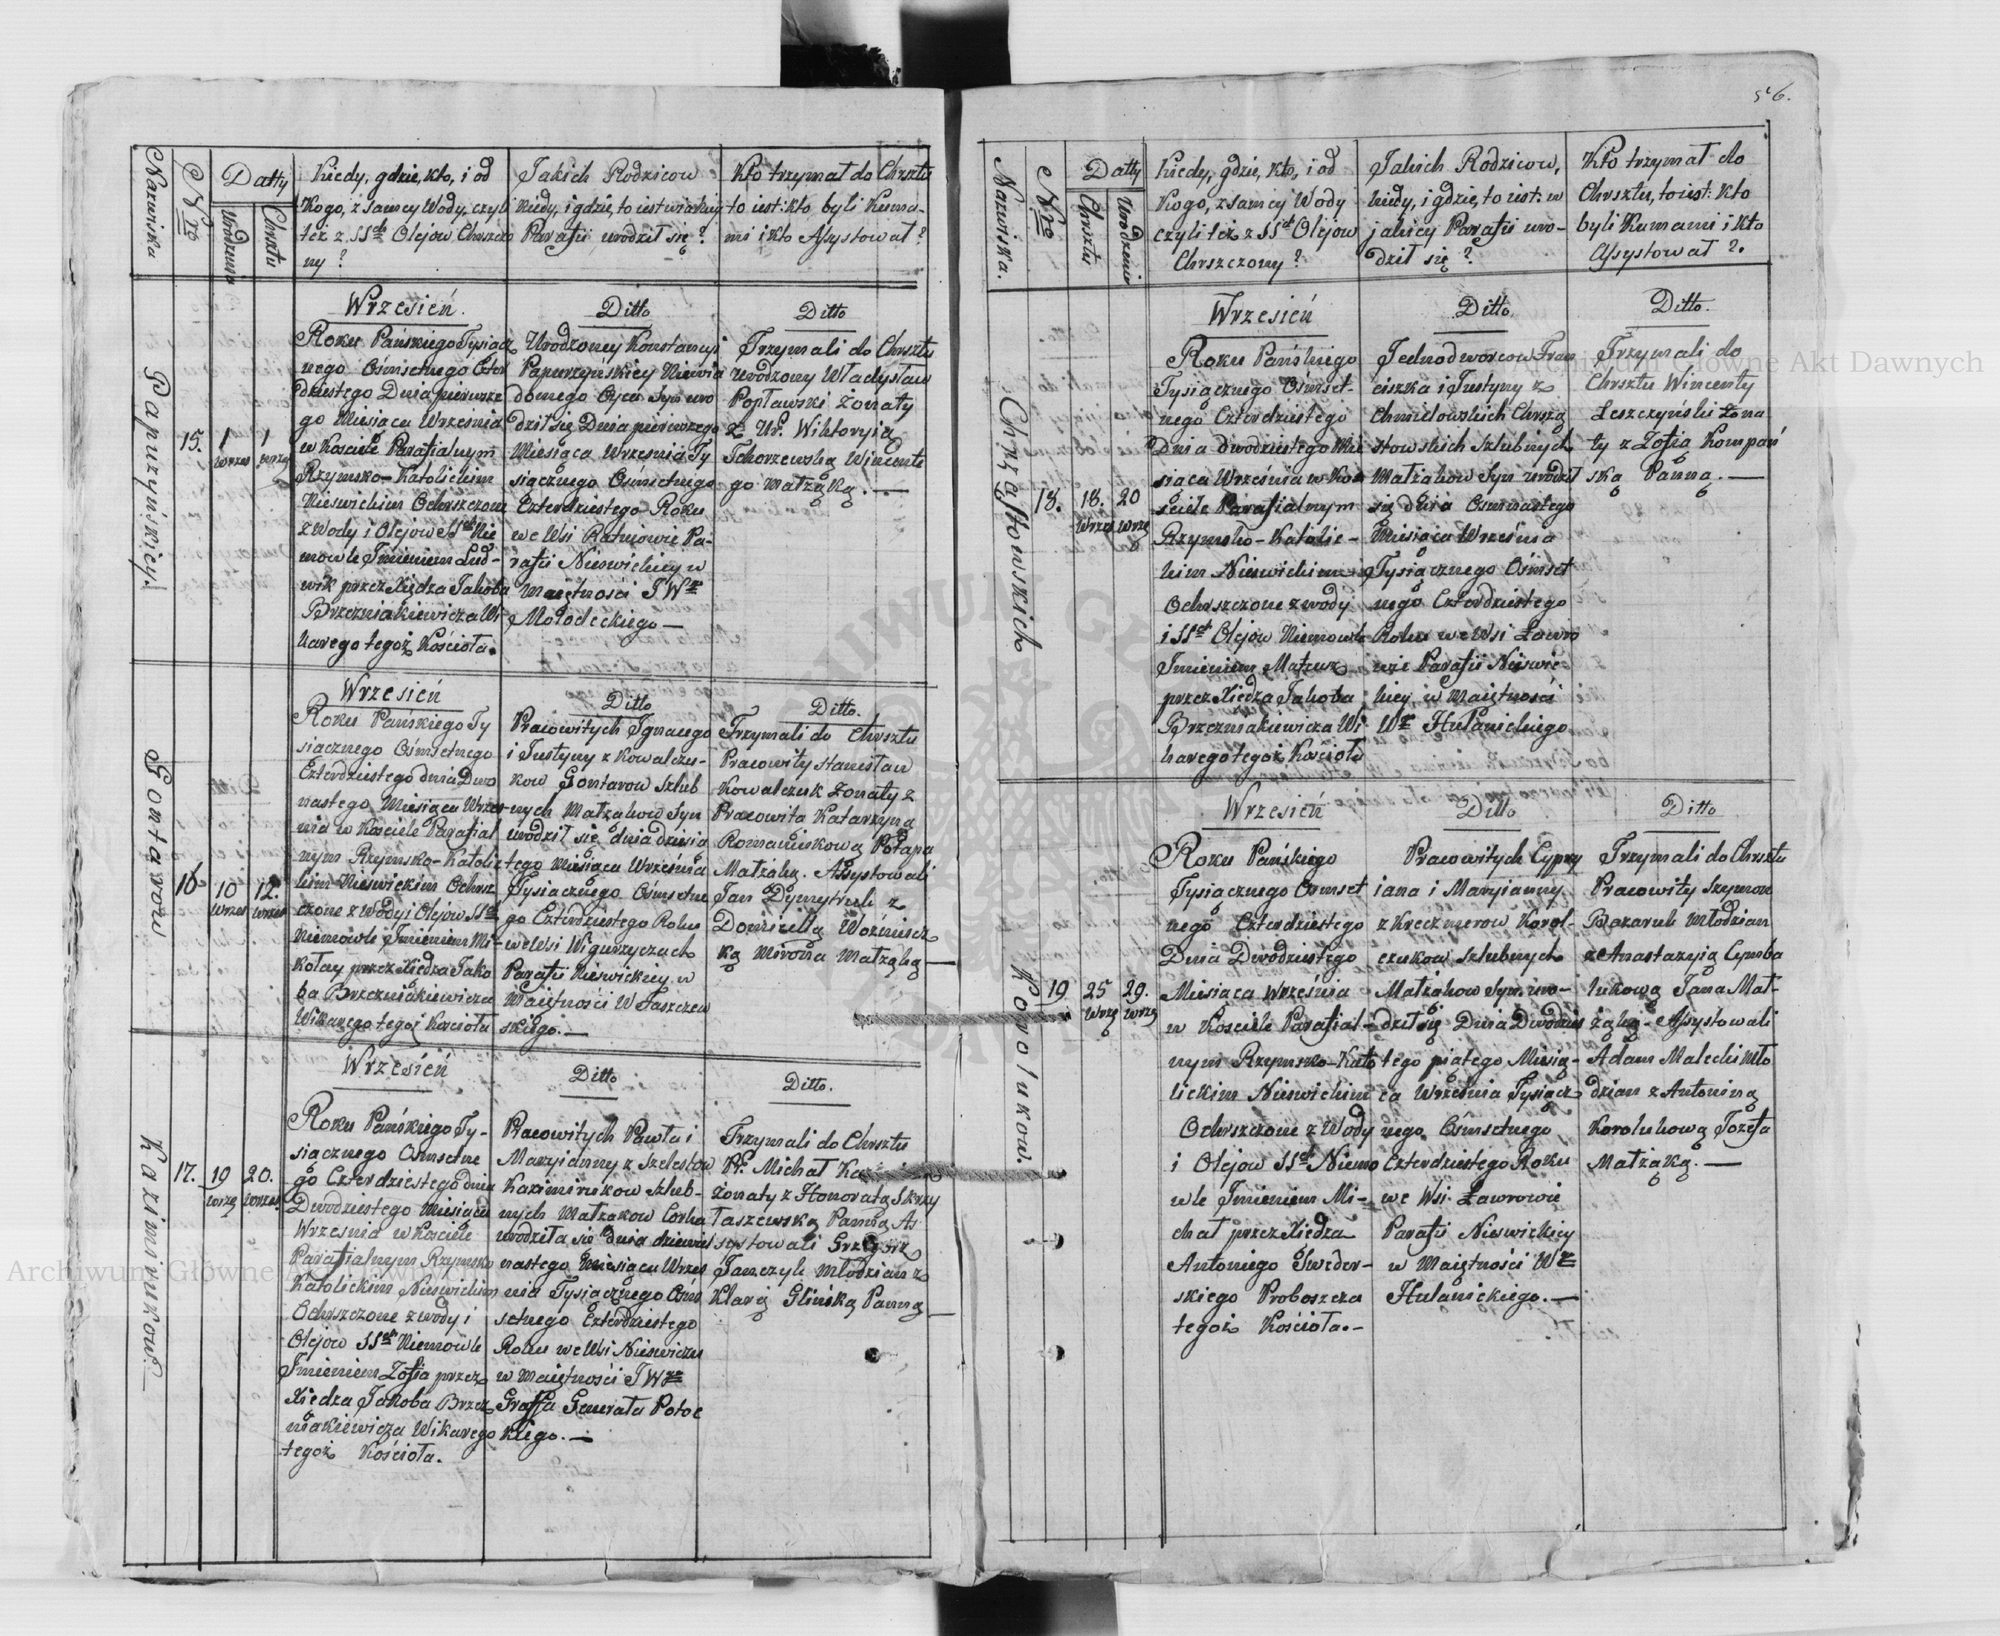 56.
Nazwiska
Nro
Datty
Urodzenia
Chrztu
Kiedy, gdzie, kto, i od
Kogo, z samey Wody, czyli
też z SSch Olejow Chrszczo
ny?
Jakich Rodzicow
kiedy, i gdzie, to iest w iakiey
Parafii urodził się?
Kto trzymał do Chrztu
to iest: kto byli Kuma-
mi i kto Assystował?
Papużyńskiey.
15.
1
wrześ
1
wrześ
Wrzesień.
Roku Pańskiego Tysiącz
nego Ośmsetnego Czter
dziestego Dnia pierwsze
go Miesiąca Września
w Kościele Parafialnym
Rzymsko-Katolickim
Nieswickim Ochrszczone
z Wody i Olejow SSch Nie
mowle Imieniem Lud-
wik przez Xiędza Jakoba
Brzezniakiewicza Wi
karego tegoż Kościoła.
Ditto
Urodzoney Konstancyi
Papurzyńskiey Niewia
domego Oyca Syn uro
dził się Dnia pierwszego
Miesiąca Września Ty
siącznego Ośmsetnego
Czterdziestego Roku
we Wsi Ratniowie Pa-
rafii Nieswickiey w
Maiętności JWgo
Mołodeckiego—
Ditto
Trzymali do Chrztu
urodzony Władysław
Popławski żonaty
z Ur. Wiktoryią
Tchorzewską Wincente
go Małżąką.—
Gontarow
16
10
wrześ
12.
wrześ
Wrzesień
Roku Pańskiego Ty
siącznego Ośmsetnego
Czterdziestego dnia Dwu
nastego Miesiąca Wrześ-
nia w Kościele Parafial
nym Rzymsko-Katolic
kim Nieswickim Ochrsz
czone z Wody i Olejow SSch
Niemowle Imieniem Mi-
kołay przez Xiędza Jako
ba Brzezniakiewicza
Wikarego tegoż Kościoła
Ditto
Pracowitych Ignacego
i Justyny z Kowalczu-
kow Gontarow Szlub
nych Małżakow Syn
urodził się dnia dziesią
tego Miesiąca Września
Tysiącznego Ośmsetne
go Czterdziestego Roku
we Wsi Wigurzyczach
Parafii Nieswickiey w
Maiętności W Jaszczew
skiego.—
Ditto.
Trzymali do Chrztu
Pracowity Stanisław
Kowalczuk żonaty z
Pracowitą Katarzyną
Romaniukową Potapa
Małżąką. Assystowali
Jan Dymytruk z
Domicellą Woźniesz
ką Mirona Małżąką—
Kazimirukow.
17.
19
wrześ
20.
wrześ
Wrzesień
Roku Pańskiego Ty-
siącznego Osmsetne
go Czterdziestego dnia
Dwudziestego Miesiąca
Września w Kościele
Parafialnym Rzymsko
Katolickim Nieswickim
Ochrszczone z wody i
Olejow SSch Niemowle
Imieniem Zofia przez
Xiędza Jakoba Brzez
niakiewicza Wikarego
tegoż Kościoła.
Ditto
Pracowitych Pawła i
Maryianny z Szelestow
Kazimirukow Szlub-
nych Małżakow Corka
urodziła się dnia dziewiet
nastego Miesiąca Wrześ
nia Tysiącznego Ośm
setnego Czterdziestego
Roku we Wsi Nieswiczu
w Maiętności JWgo
Graffa Generała Potoc
kiego.—
Ditto.
Trzymali do Chrztu
Pr. Michał Ka
żonaty z Honoratą Skrzy
taszewską Panną As
systowali Grzegorz
Janczyk młodzian z
Klarą Glińską Panną—
Nazwiska.
Nro
Datty
Chrztu
Urodzenia
Kiedy, gdzie, kto, i od
Kogo, z samey Wody
czyli też z SSch Olejow
Chrszczony?
Jakich Rodzicow,
kiedy, i gdzie, to iest: w
jakiey Parafii uro-
dził się?
Kto trzymał do
Chrztu, to iest: kto
byli Kumami i kto
Assystował?.
Chrząstowskich
18.
18.
wrześ
20
wrze
Wrzesień
Roku Pańskiego
Tysiącznego Ośmset-
nego Czterdziestego
Dnia dwudziestego Mie
siąca Września w Koś
ciele Parafialnym
Rzymsko-Katolic-
kim Nieswickim
Ochrszczone z wody
i SSch Olejow Niemowle
Imieniem Mateusz
przez Xiędza Jakoba
Brzezniakiewicza Wi-
karego tegoż Kościoła
Ditto.
Jednodworcow Fran
ciszka i Justyny z
Chmielowskich Chrzą
stowskich Szlubnych
Małżakow Syn urodził
się dnia Osmnastego
Miesiąca Września
Tysiącznego Ośmset
nego Czterdziestego
Roku we Wsi Ławro
wie Parafii Nieswic-
kiey w Maiętności
Wgo Hulanickiego
Ditto.
Trzymali do
Chrztu Wincenty
Leszczyński żona
ty z Zofią Kompań
ską Panną.—
Korolukow.
19
25
wrze
29.
wrze
Wrzesień
Roku Pańskiego
Tysiącznego Osmset
nego Czterdziestego
Dnia Dwudziestego
Miesiąca Września
w Kościele Parafial-
nym Rzymsko-Kato
lickim Nieswickim
Ochrszczone z Wody
i Olejow SSch Niemo
wle Imieniem Mi-
chał przez Xiędza
Antoniego Swider-
skiego Proboszcza
tegoż Kościoła.-
Ditto
Pracowitych Cypry
iana i Maryianny
z Kreczmerow Korol-
czukow Szlubnych
Małżakow Syn uro-
dził się Dnia Dwudzies
tego piątego Miesią-
ca Września Tysiącz
nego Ośmsetnego
Czterdziestego Roku
we Wsi Ławrowie
Parafii Nieswickiey
w Maiętności Wgo
Hulanickiego.—
Ditto
Trzymali do Chrztu
Pracowity Szymon
Bazaruk Młodzian
z Anastazyią Cymba
lukową Jana Mał-
żąką. Assystowali
Adam Malecki Mło
dzian z Antoniną
Korolukową Jozefa
Małżąką.—
Archiwum Główne Akt Dawnych